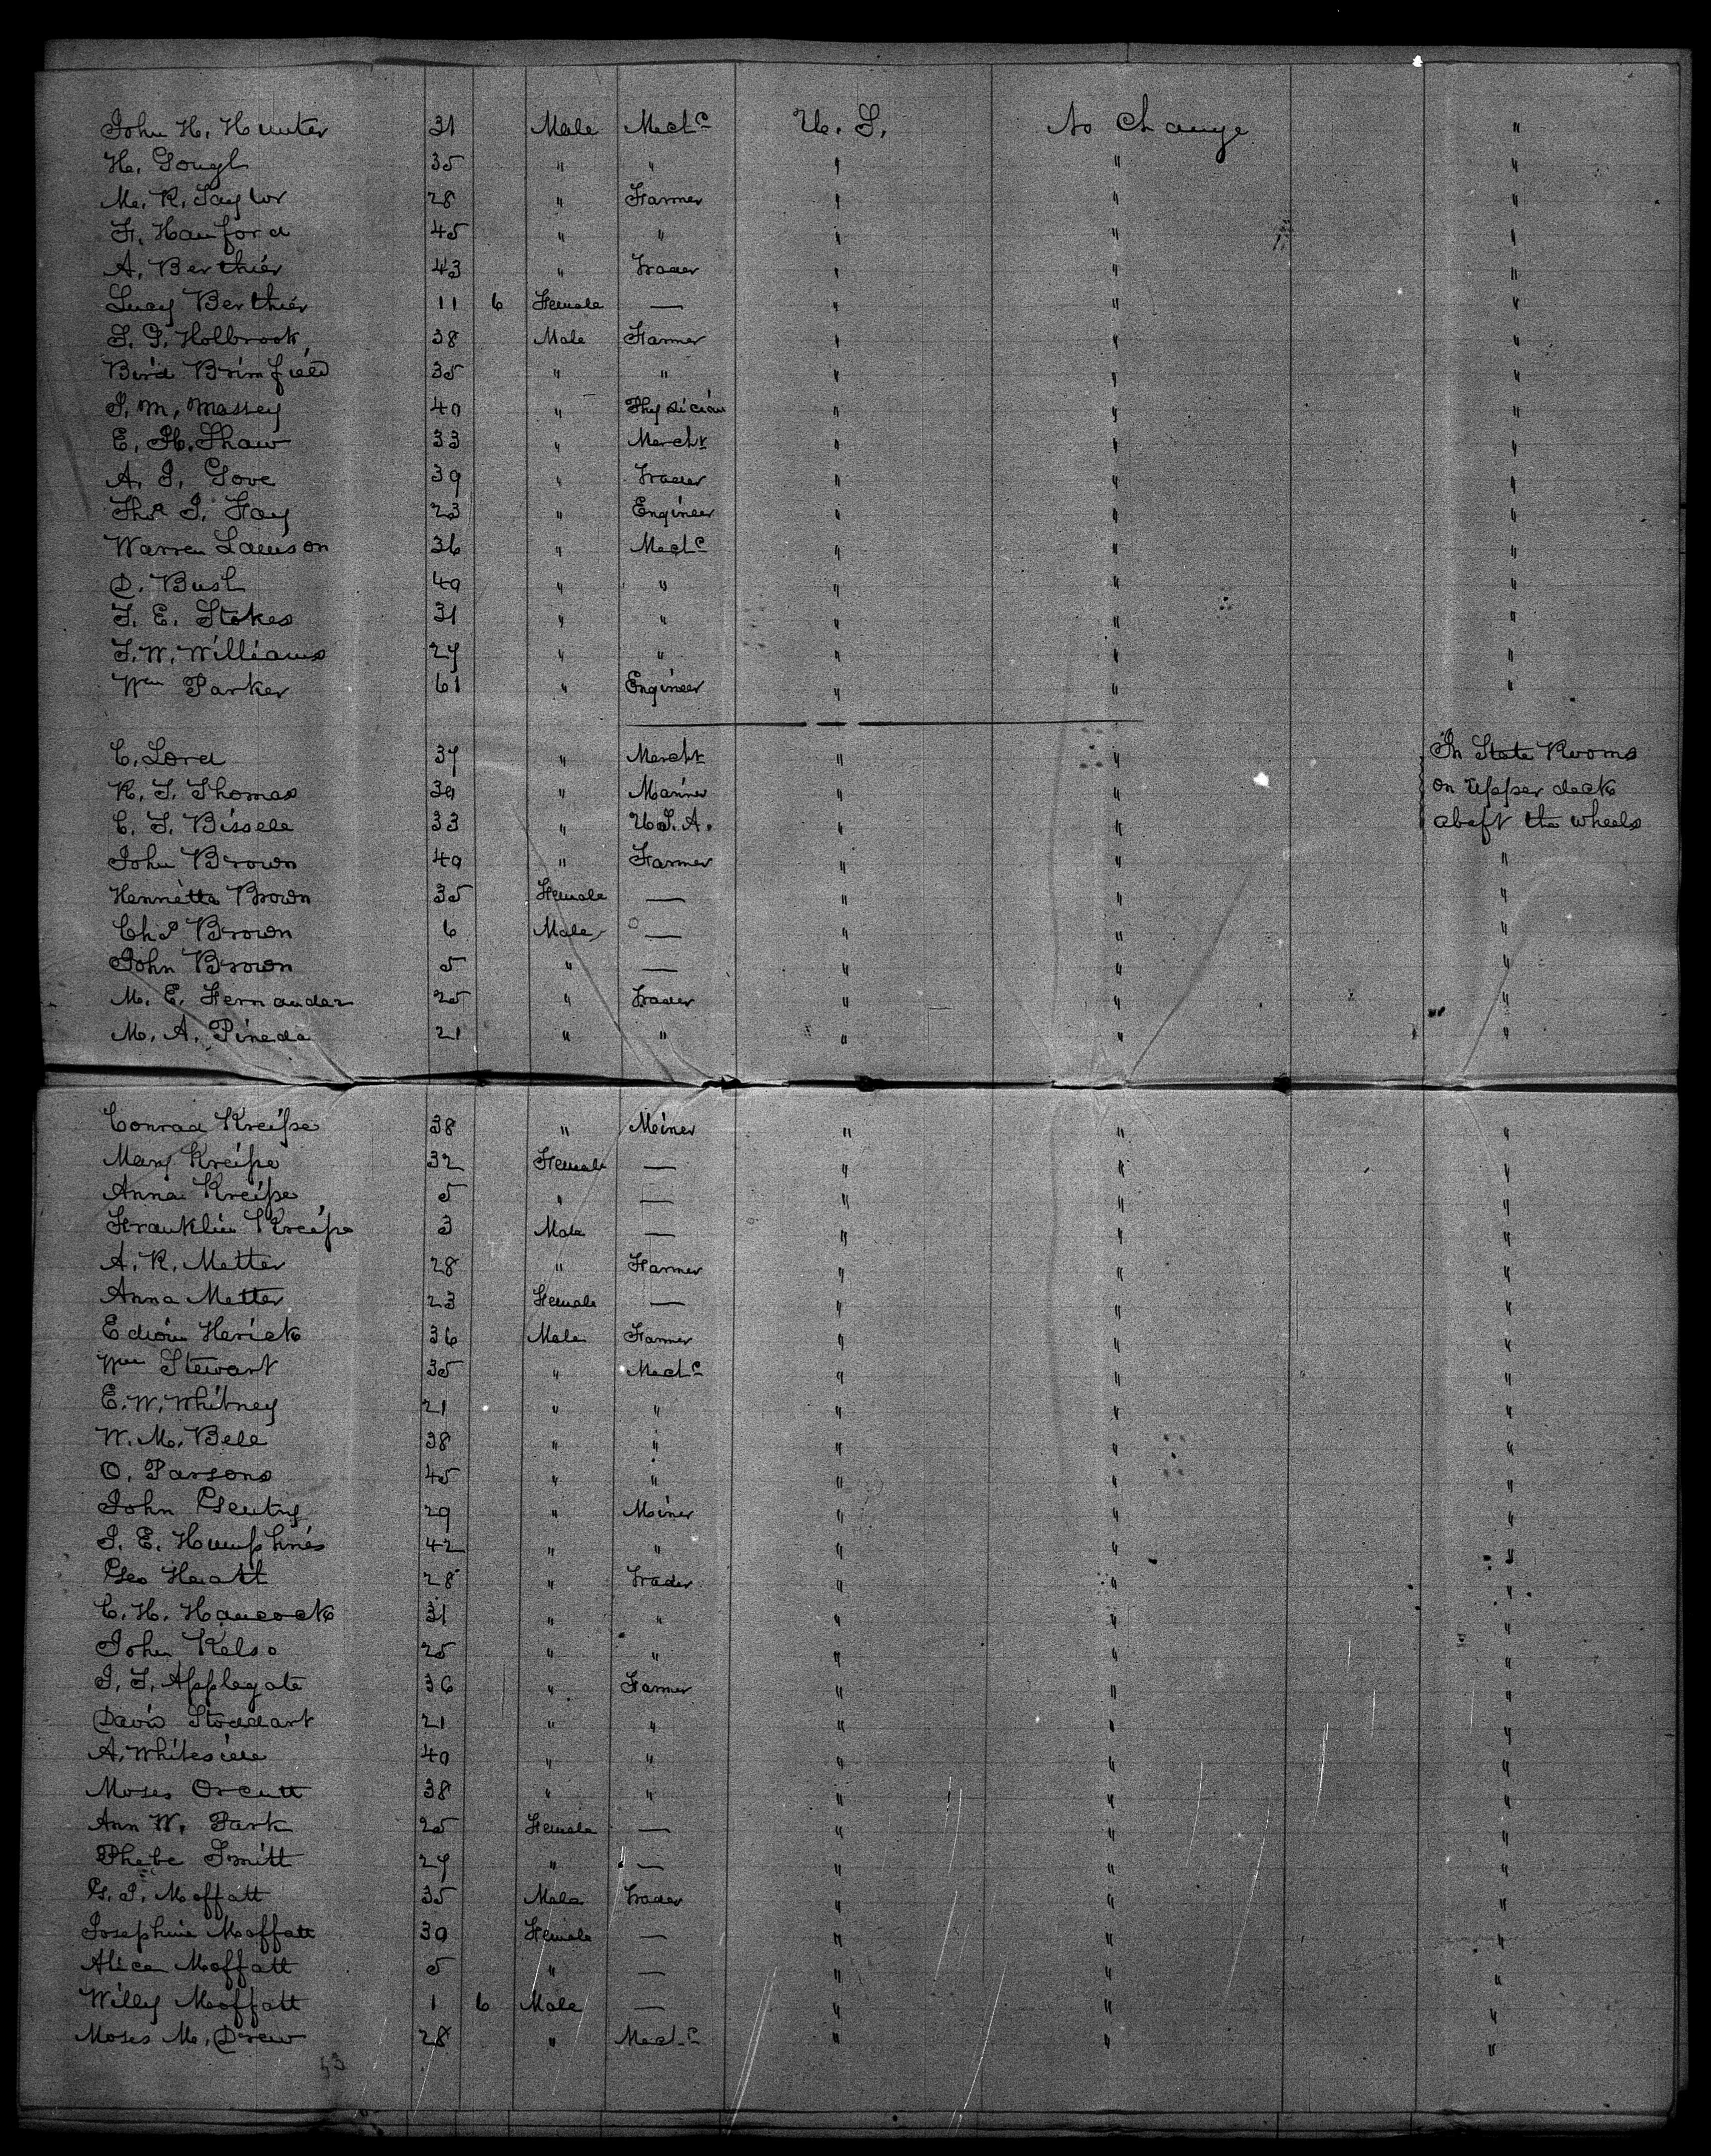 John H. Hunter 31 Male Mech.c U. S. No Change "
H. Gough 35 " " " " "
M. R. Taylor 28 " Farmer " " "
F. Hanford 45 " " " " "
A. Berthier 43 " Trader " " "
Lucy Berthier 11 6 Female — " " "
S. G. Holbrook 38 Male Farmer " " "
Bird Brimfield 35 " " " " "
J. M. Massey 40 " Physician " " "
E. H. Shaw 33 " Mercht " " "
A. J. Gove 39 " Trader " " "
Thos J. Fay 23 " Engineer " " "
Warren Lawson 36 " Mech.c " " "
D. Bush 40 " " " " "
T. E. Stokes 31 " " " " "
T. W. Williams 27 " " " " "
Wm Parker 61 " Engineer " " "
C. Lord 37 " Mercht " " In State Rooms
R. T. Thomas 30 " Mariner " " on upper deck
C. T. Bissell 33 " U.S.A. " " abaft the wheels
John Brown 40 " Farmer " " "
Henrietta Brown 35 Female — " " "
Chs Brown 6 Male — " " "
John Brown 5 " — " " "
M. E. Fernandez 25 " Trader " " "
M. A. Pineda 21 " " " " "
Conrad Kreipe 38 " Miner " " "
Mary Kreipe 32 Female — " " "
Anna Kreipe 5 " — " " "
Franklin Kreipe 3 Male — " " "
A. R. Metter 28 " Farmer " " "
Anna Metter 23 Female — " " "
Edwin Herick 36 Male Farmer " " "
Wm Stewart 35 " Mech.c " " "
E. W. Whitney 21 " " " " "
W. M. Bell 38 " " " " "
O. Parsons 45 " " " " "
John Gentry 29 " Miner " " "
J. E. Humphries 42 " " " " "
Geo Hiatt 28 " Trader " " "
C. H. Hancock 31 " " " " "
John Kelso 25 " " " " "
J. T. Applegate 36 " Farmer " " "
David Stoddart 21 " " " " "
A. Whiteside 40 " " " " "
Moses Orcutt 38 " " " " "
Ann W. Park 25 Female — " " "
Phebe Smith 27 " — " " "
G. J. Moffatt 35 Male Trader " " "
Josephine Moffatt 30 Female — " " "
Alice Moffatt 5 " — " " "
Willy Moffatt 1 6 Male — " " "
Moses M. Drew 28 " Mech.c " " "
53